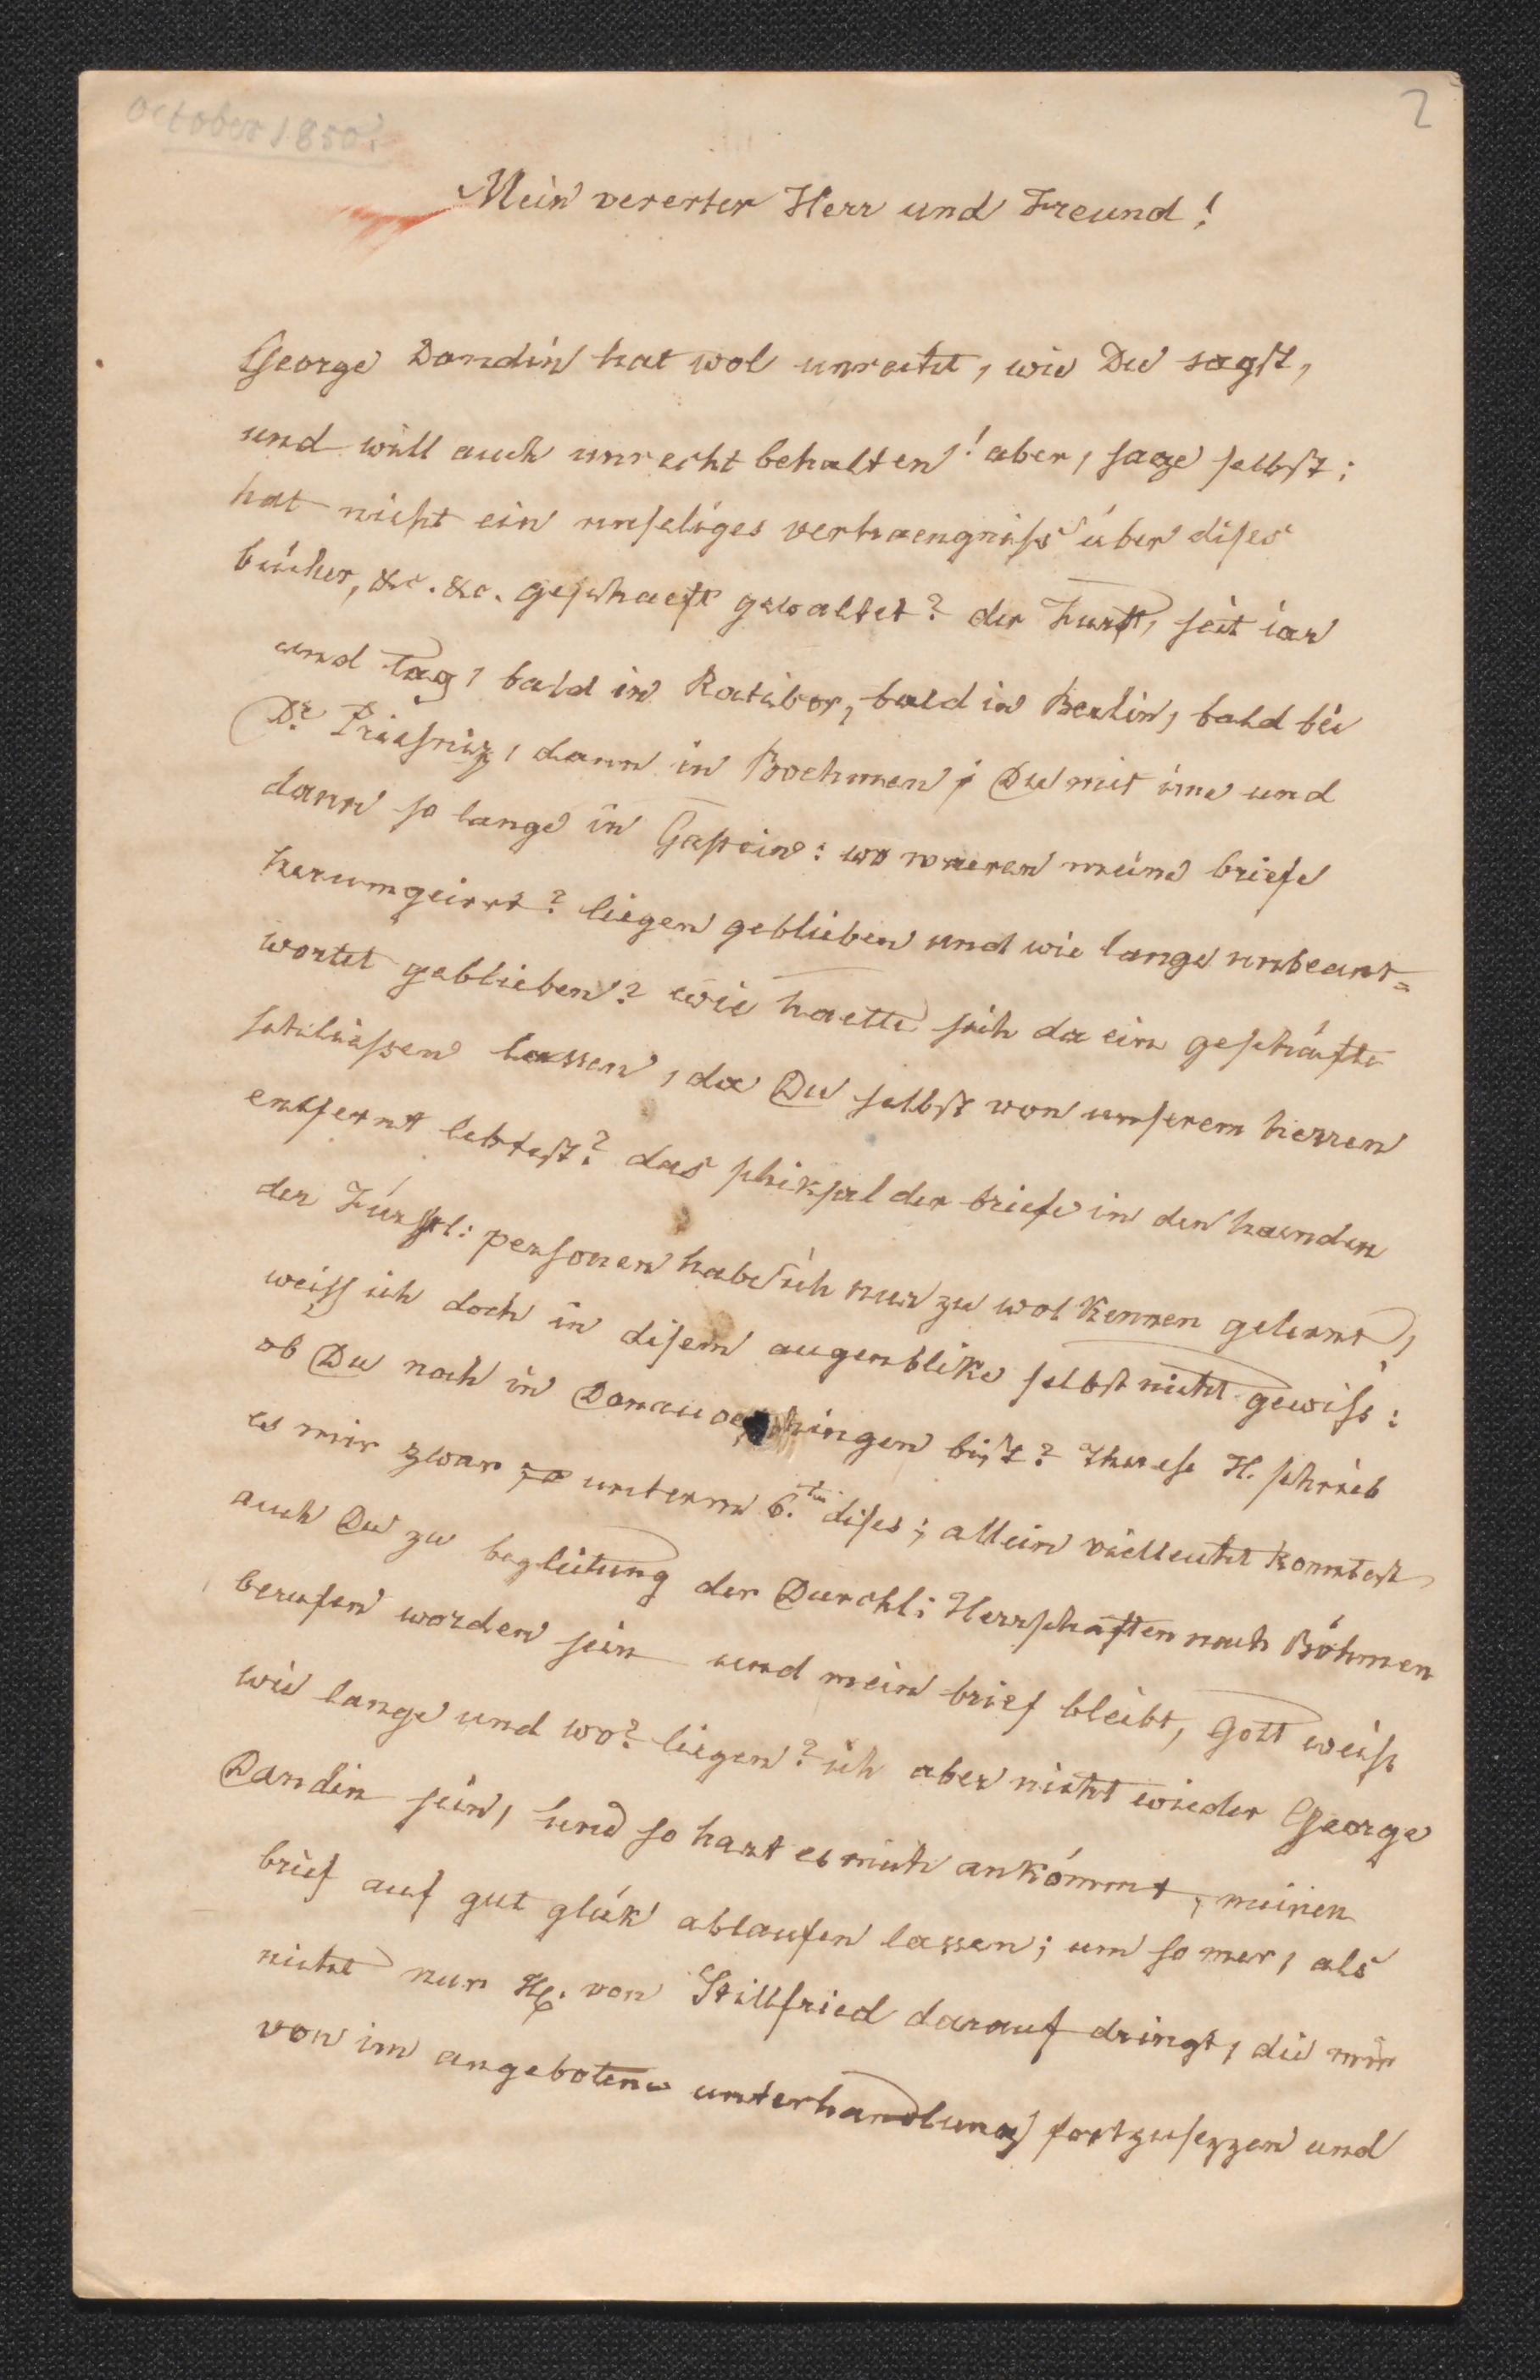 October 1850?
2
Mein vererter Herr und Freund!
George Dandin hat wol unrecht, wie Du sagst,
und will auch unrecht behalten! aber, sage selbst:
hat nicht ein unseliges verhaengniss über dises
bücher, &c. &c. geschaeft gewaltet? der Fürst, seit iar
und tag, bald in Ratibor, bald in Berlin, bald bei
Dr. Priesniz, dann in Boehmen; Du mit ime und
dann so lange in Gastein: wo waeren meine briefe
herumgeirrt? liegen geblieben und wie lange unbeant=
wortet geblieben? wie haette sich da ein geschäfte
schliessen lassen, da Du selbst von unserem herren
entfernt lebtest? das schiksal der briefe in den haenden
der Fürstl: personen habe ich nur zu wol kennen gelernt,
weiss ich doch in disem augenblike selbst nicht gewiss:
ob Du noch in Donaueschingen bist? Therese H. schrieb
es mir zwar unterm 6.ten dises; allein vielleicht konntest
auch Du zu begleitung der Durchl: Herrschaften nach Böhmen
berufen worden sein und mein brief bleibt, Gott weiss
wie lange und wo? liegen? ich aber nicht wieder George
Dandin sein, und so hart es mich ankömmt, meinen
brief auf gut glük ablaufen lassen; um so mer, als
nicht nur H. von Stillfried darauf dringt, die mir
von im angebotene unterhandlung fortzusezzen und